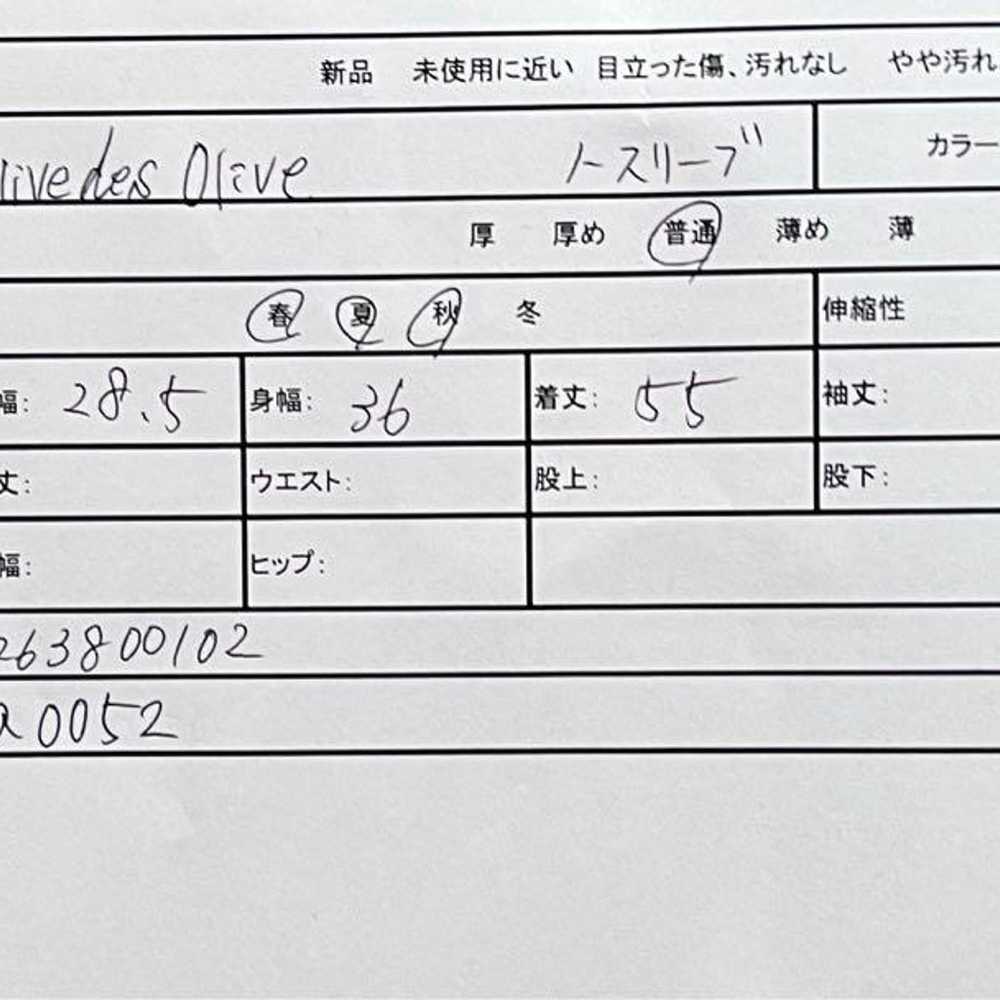 新品 未使用に近い 目立った傷、汚れなし やや汚れ
livedes Olive ノースリーブ カラー
厚 厚め 普通 薄め 薄
春 夏 秋 冬 伸縮性
幅: 28.5 身幅: 36 着丈: 55 袖丈:
丈: ウエスト: 股上: 股下:
幅: ヒップ:
263800102
a0052